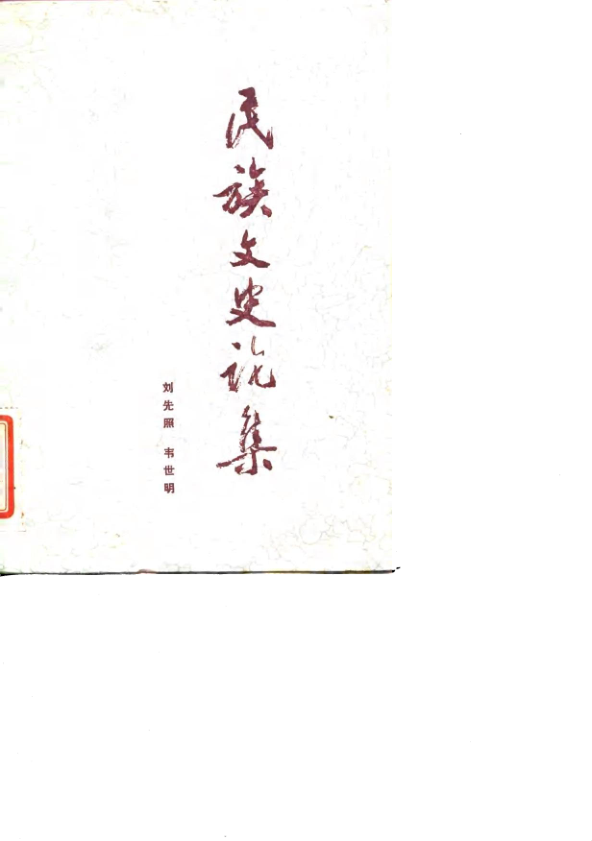 民族文史论集
刘先照 韦世明